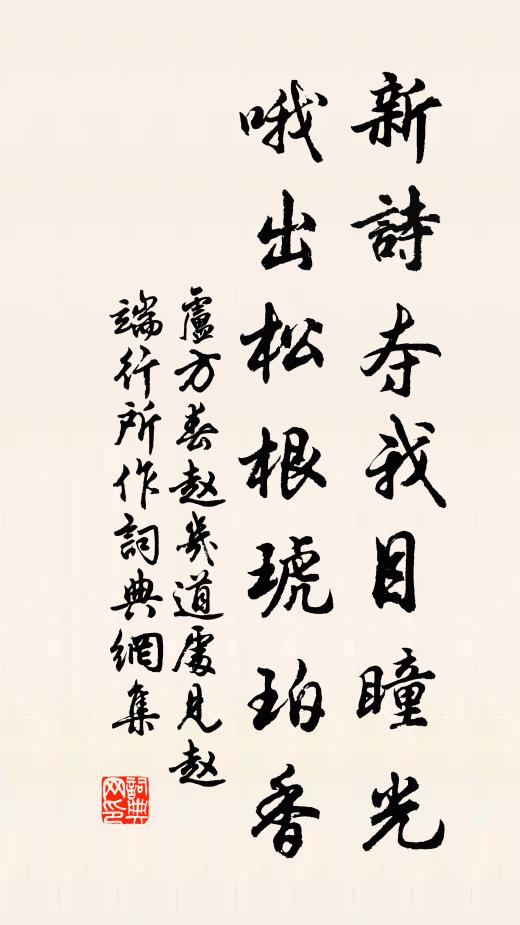 新詩夺我目瞳光
哦出松根琥珀香
盧方春赵幾道處見赵
端行所作詞典網集
詞典網印